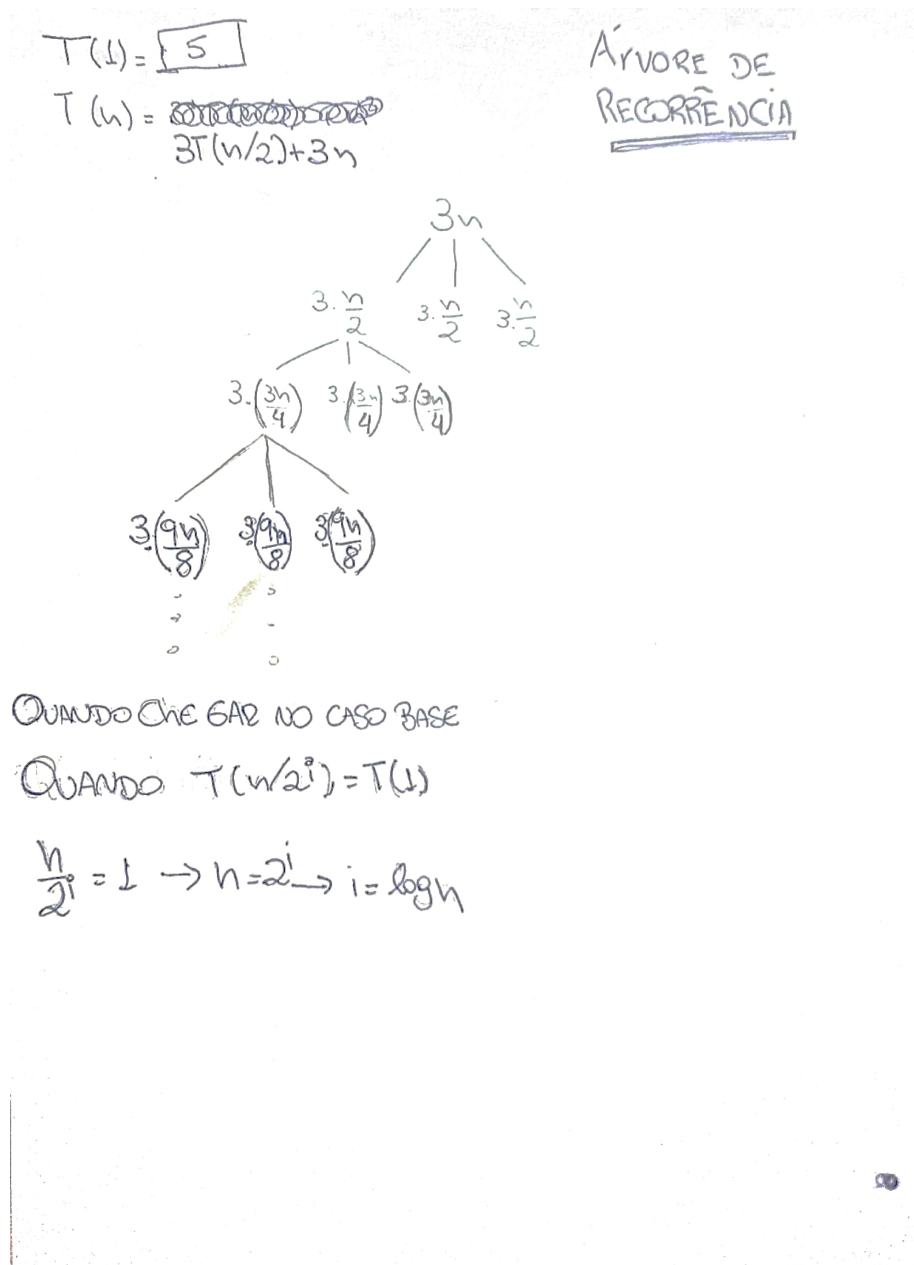 T(1) = 5
ÁRVORE DE
RECORRÊNCIA
T(n) =
3T(n/2)+3n
3n
3.n/2 3.n/2 3.n/2
3.(3n/4) 3.(3n/4) 3.(3n/4)
3.(9n/8) 3.(9n/8) 3.(9n/8)
QUANDO CHEGAR NO CASO BASE
QUANDO T(n/2^i) = T(1)
n/2^i = 1 → n = 2^i → i = log n